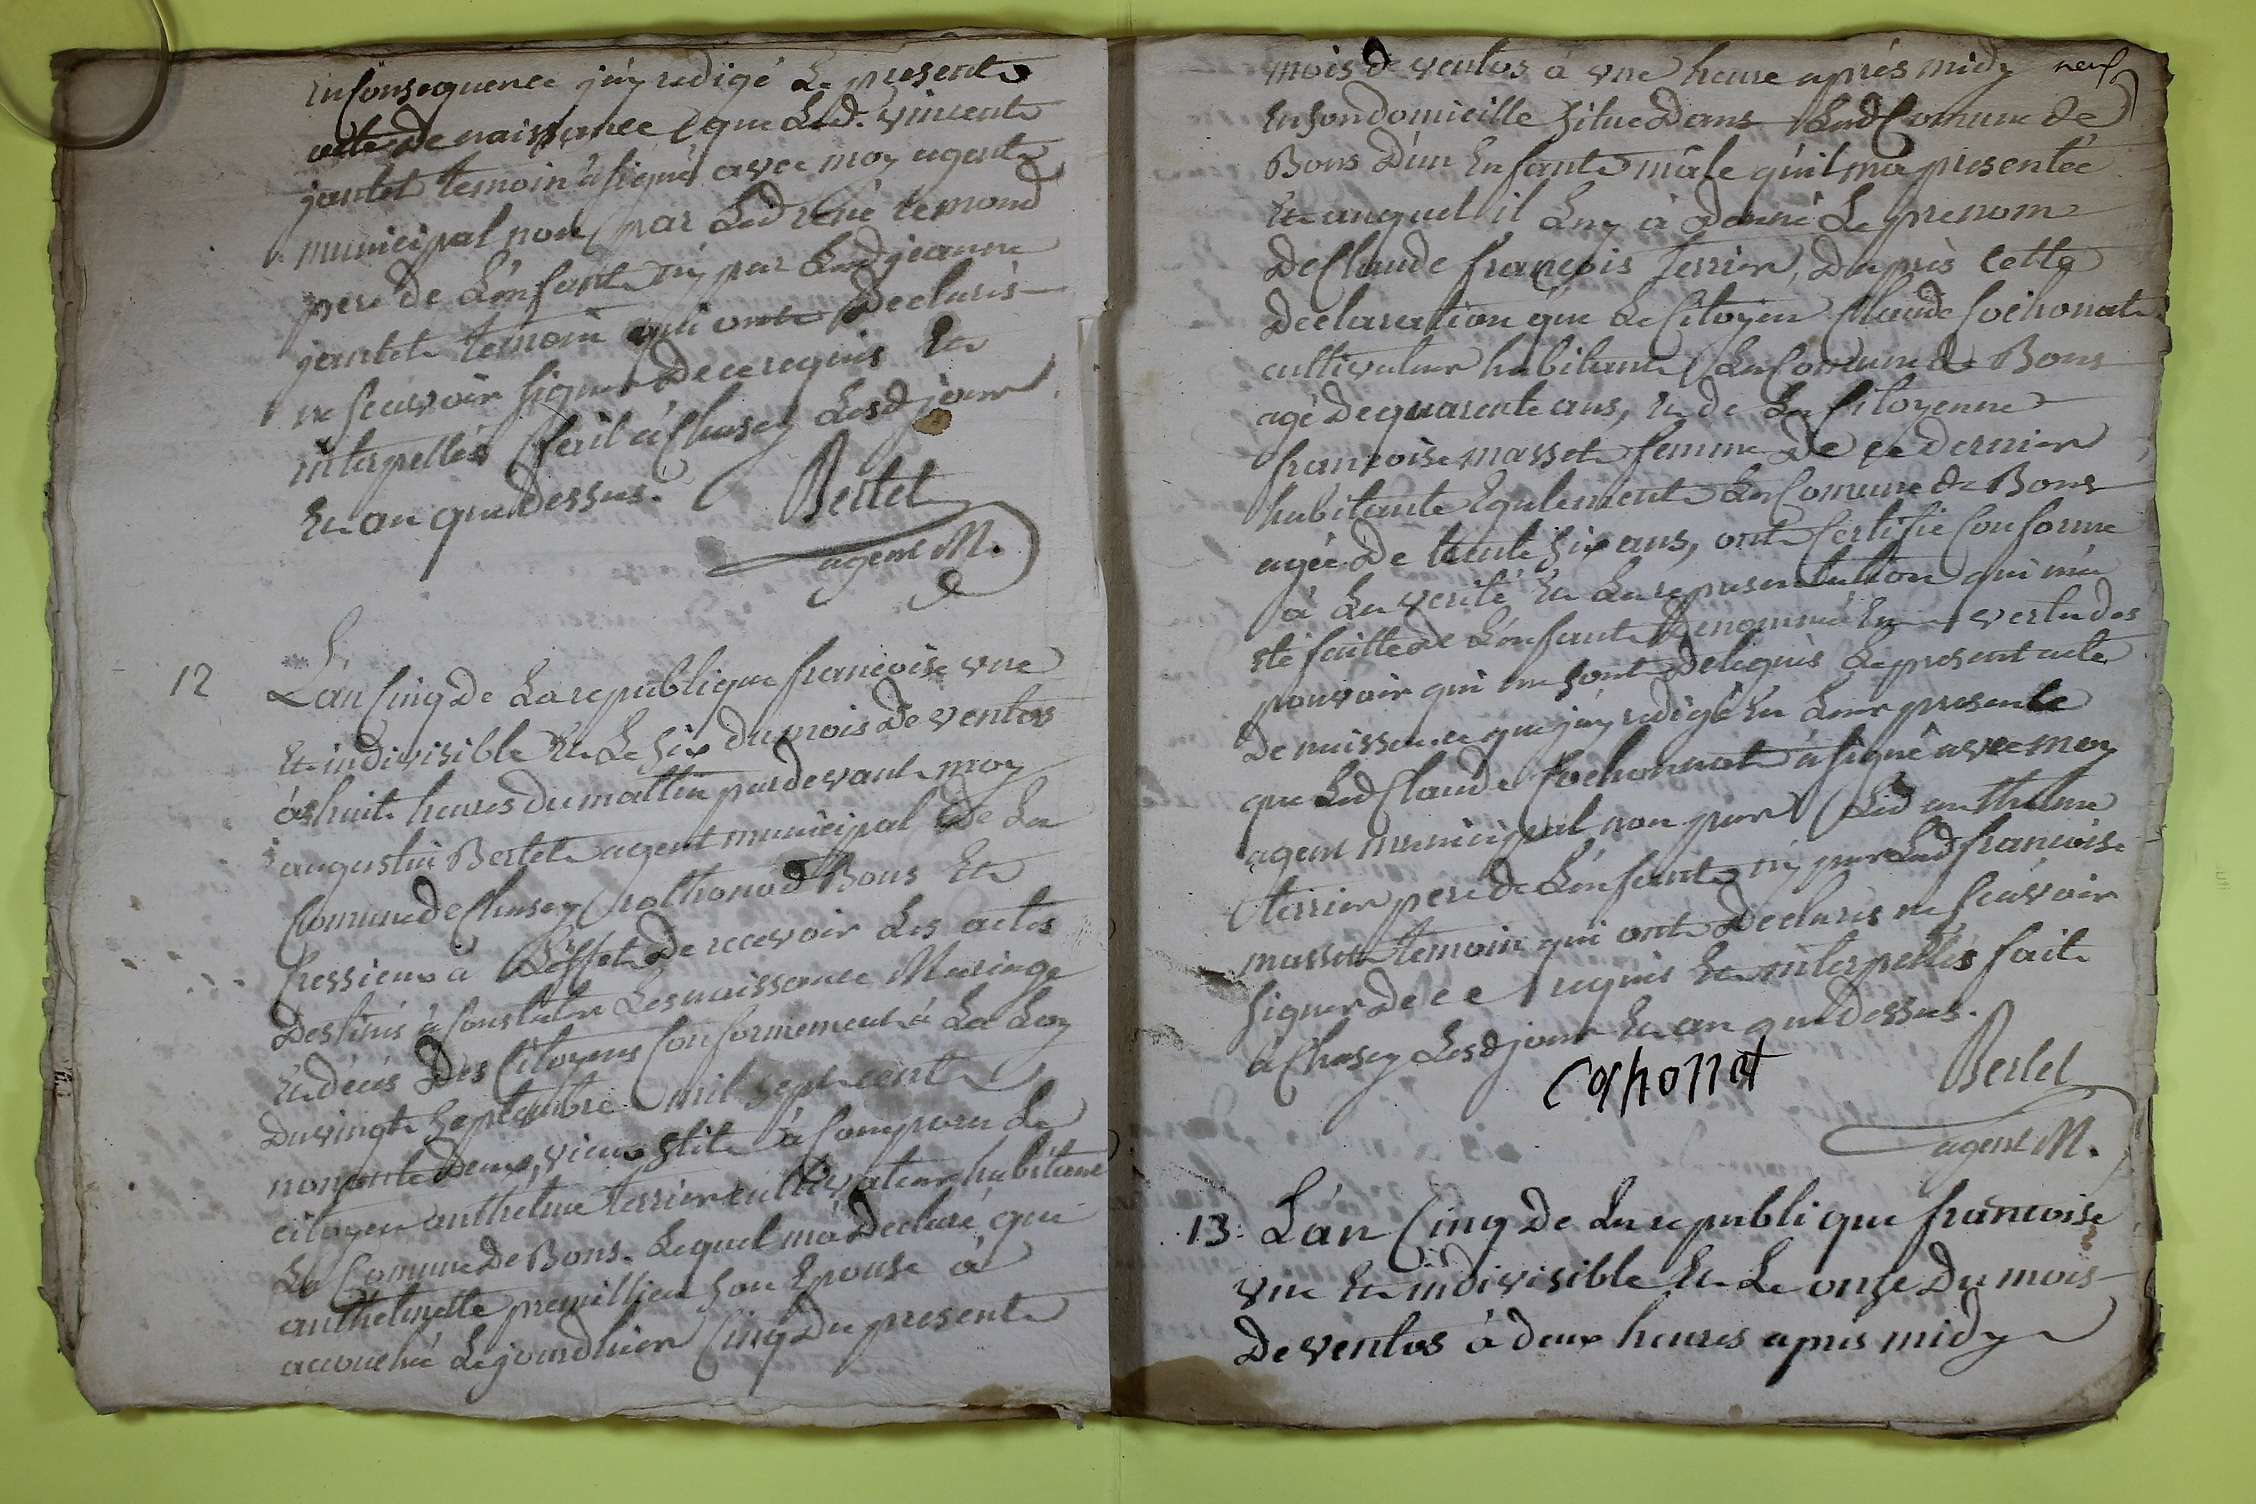 en consequence j'ay redigé le present
acte de naissance que led. vincent
jantet temoin à signé avec moy agent
municipal non par led rené remond
pere de l'enfant ny par lad jeanne
jantet temoin qui ont declarés
ne scavoir signer de ce requis et
interpellés fait à Chasey lesd jour
et an que dessus.
Bertet
agent M.
12
L'an Cinq de la republique francoise une
et indivisible et le six du mois de ventos
à huit heures du mattin pardevant moy
augustin Bertet agent municipal de la
Comune de Chasey Rothonod Bons et
Cressieux à l'effet de recevoir les actes
destinés à Constater les naissance Mariage
et décés des Citoyens Conformement à la Loy
du vingt septembre mil sept cent
nonante deux, vieux stile à Comparu le
citoyen anthelme terrier cultivateur habitant
la Comune de Bons. lequel m'a declaré que
anthelmette premillieu son Epouse à
accouché le jourd'hier Cinq du present
mois de ventos à une heure aprés midy
neuf
en son domicille situé dans lad Comune de
Bons d'un enfant mâle qu'il m'a presentée
et auquel il luy à donné le prenom
de Claude françois terrier, d'aprés cette
declaration que le Citoyen Claude Cochonat
cultivateur habitant la Comune de Bons
agé de quarente ans, et de la Citoyenne
françoise masset femme de ce dernier
habitante Egalement la Comune de Bons
agée de trente six ans, ont Certifié Conforme
à la verité et la representation qui m'a
eté faitte de l'enfant denommé en vertu des
pouvoir qui me sont delegués le present acte
de naissance que j'ay redigé en leur presence
que led Claude Cochonnat à signé avec moy
agent municipal non par led anthelme
terrier pere de l'enfant ny par lad francoise
masset temoin qui ont declarés ne scavoir
signer de ce requis et interpellés fait
à Chasey lesd jour et an que dessus.
Cochonnat
Bertet
agent M.
13. L'an Cinq de la republique francoise
une et indivisible et le onze du mois
de ventos à deux heures aprés midy